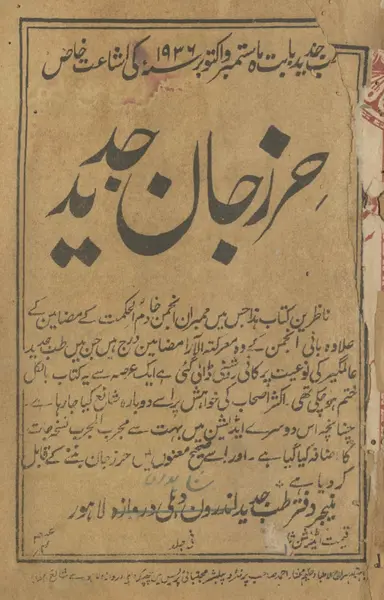 طب جدید بابت ماہ ستمبر و اکتوبر ۱۹۳۶ سنہ کی اشاعت خاص
حرز جان جدید
ناظرین کتاب ہذا جس میں ممبران انجمن خادم الحکمت کے مضامین کے
علاوہ بانی انجمن کے وہ معرکتہ الآرا مضامین درج ہیں جن میں طب جدید
عالمگیر کی نوعیت پر کافی روشنی ڈالی گئی ہے ایک عرصہ سے یہ کتاب بالکل
ختم ہو چکی تھی۔ اکثر اصحاب کی خواہش پر اسے دوبارہ شائع کیا جا رہا ہے۔
چنانچہ اس دوسرے ایڈیشن میں بہت سے مجرب المجرب نسخہ جات
کا اضافہ کیا گیا ہے۔ اور اسے صحیح معنوں میں حرز جان بننے کے قابل
کر دیا ہے
منیجر دفتر طب جدید اندرون دہلی دروازہ لاہور
قیمت فی جلد